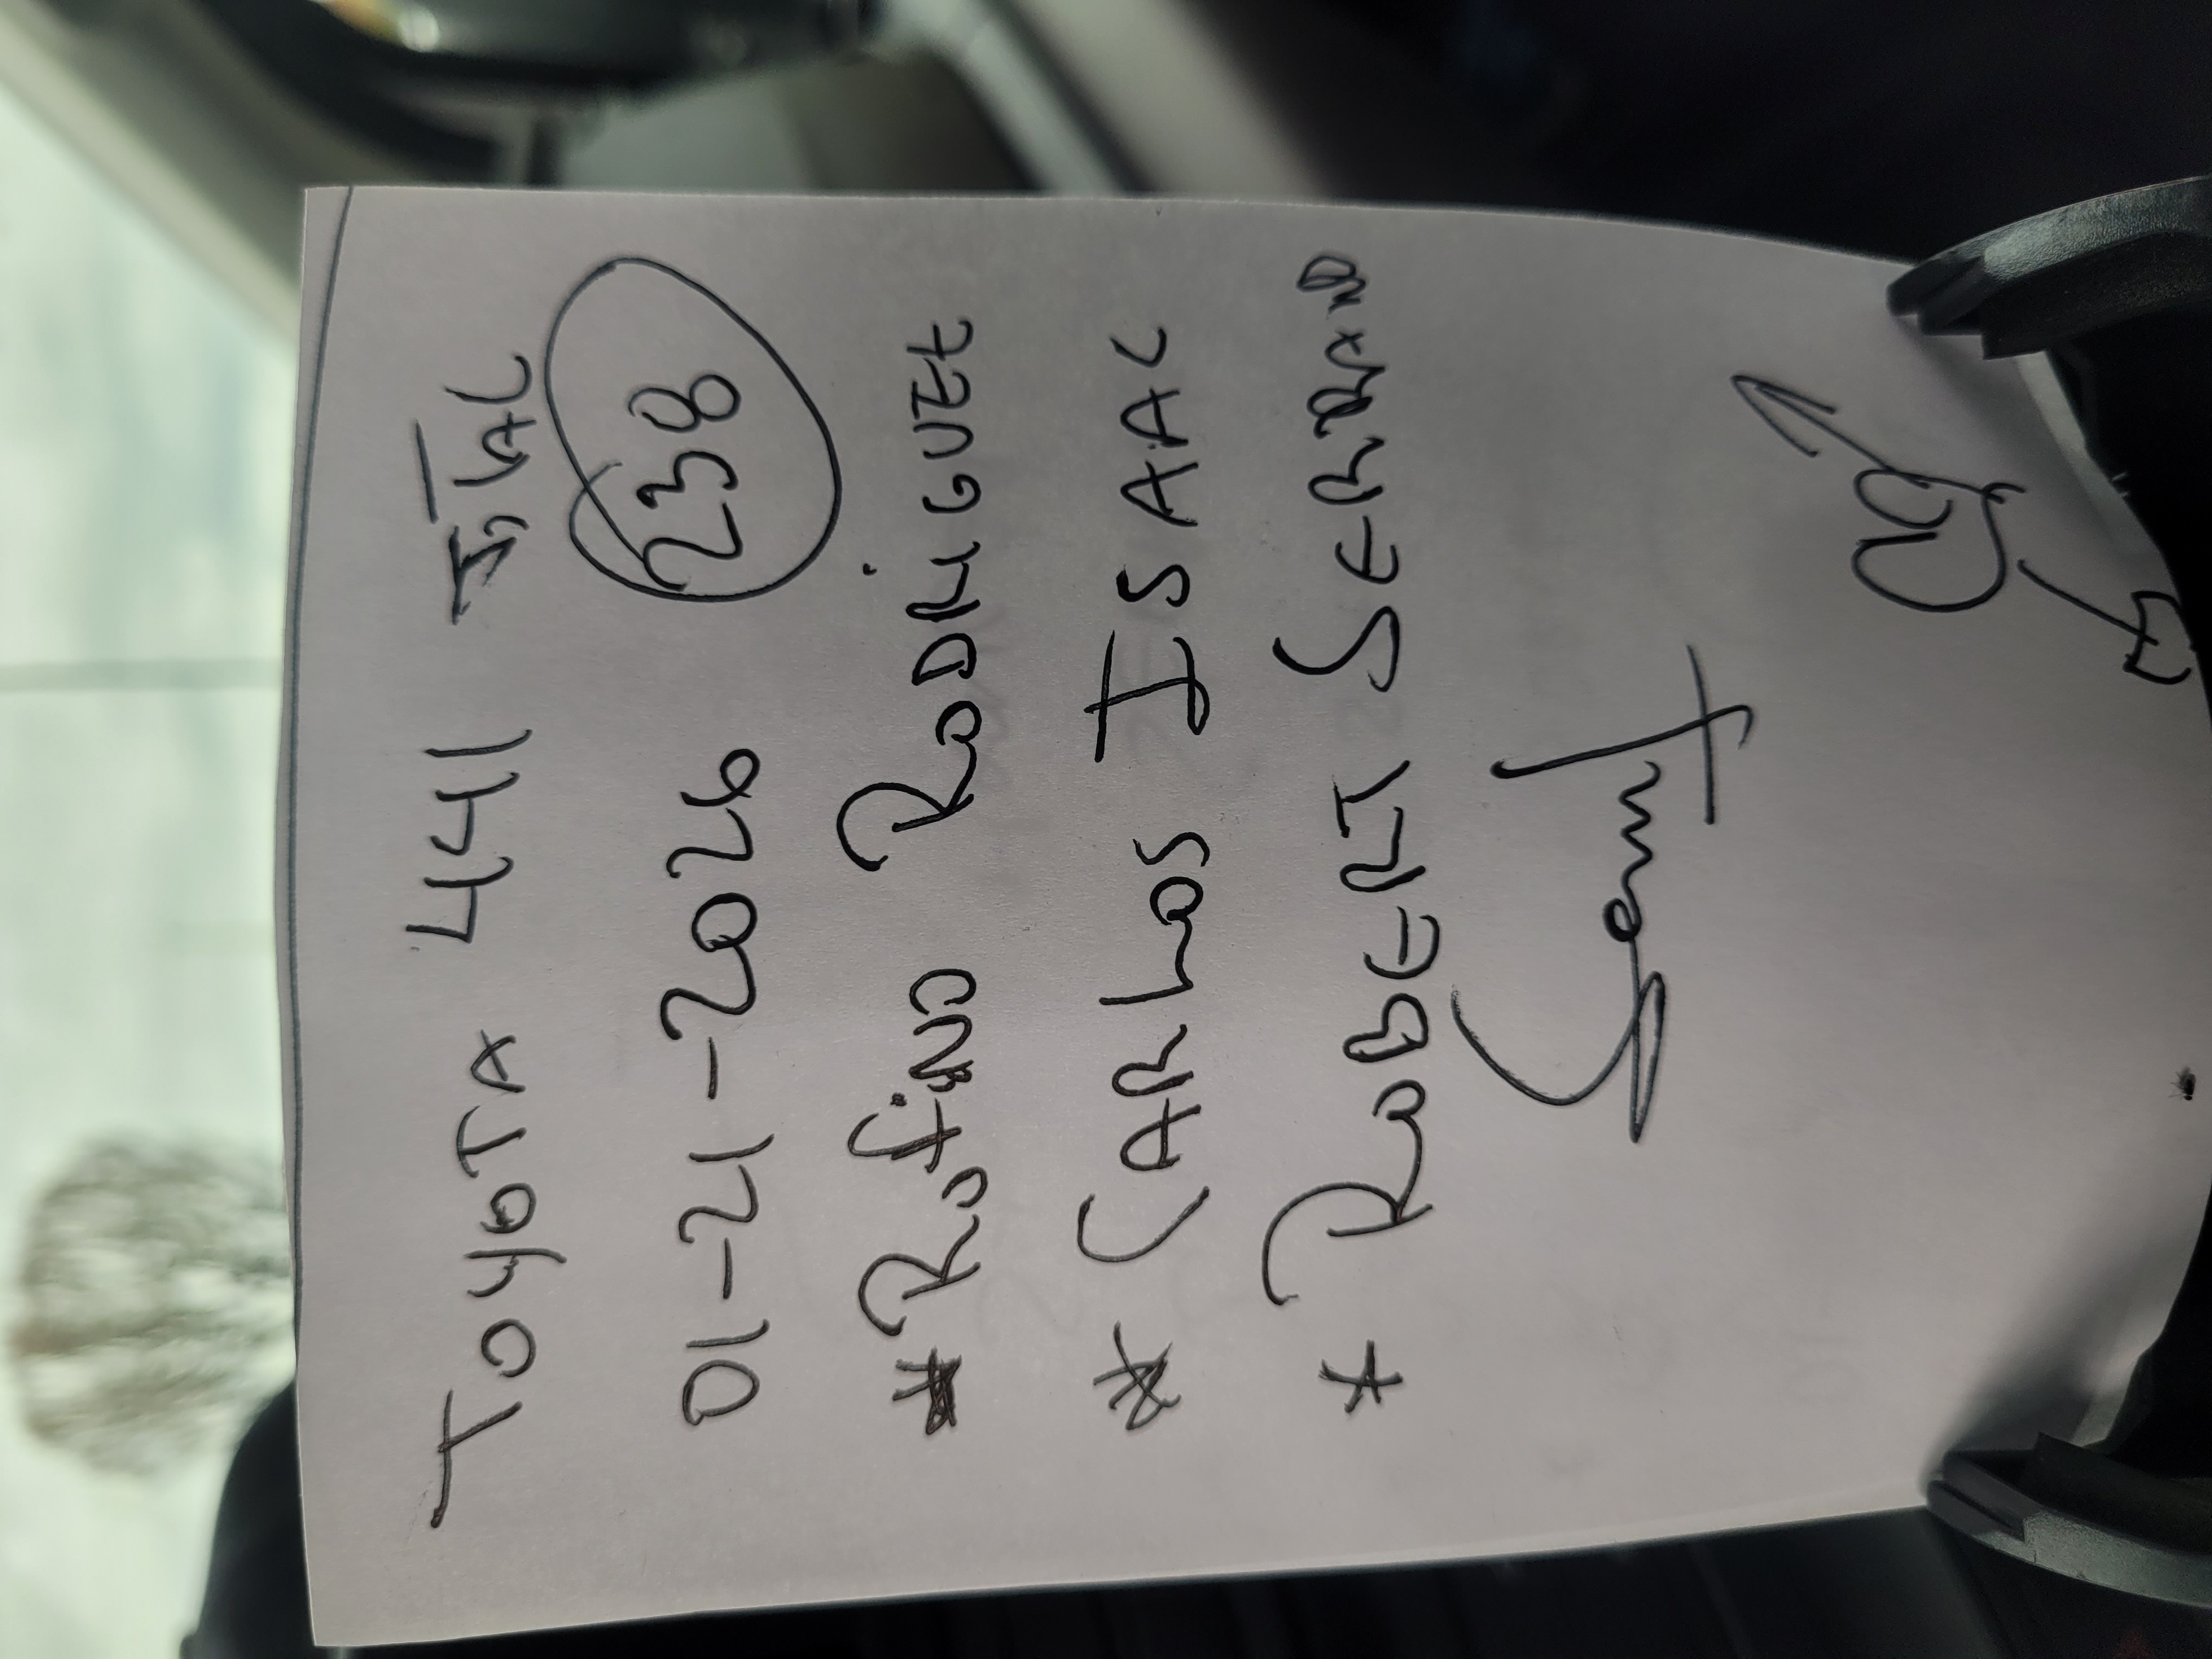 TOYOTA 4411
01-21-2026 238
* Rofino RODRIGUEZ
* CARLOS ISAAC
* ROBERT SERRANO